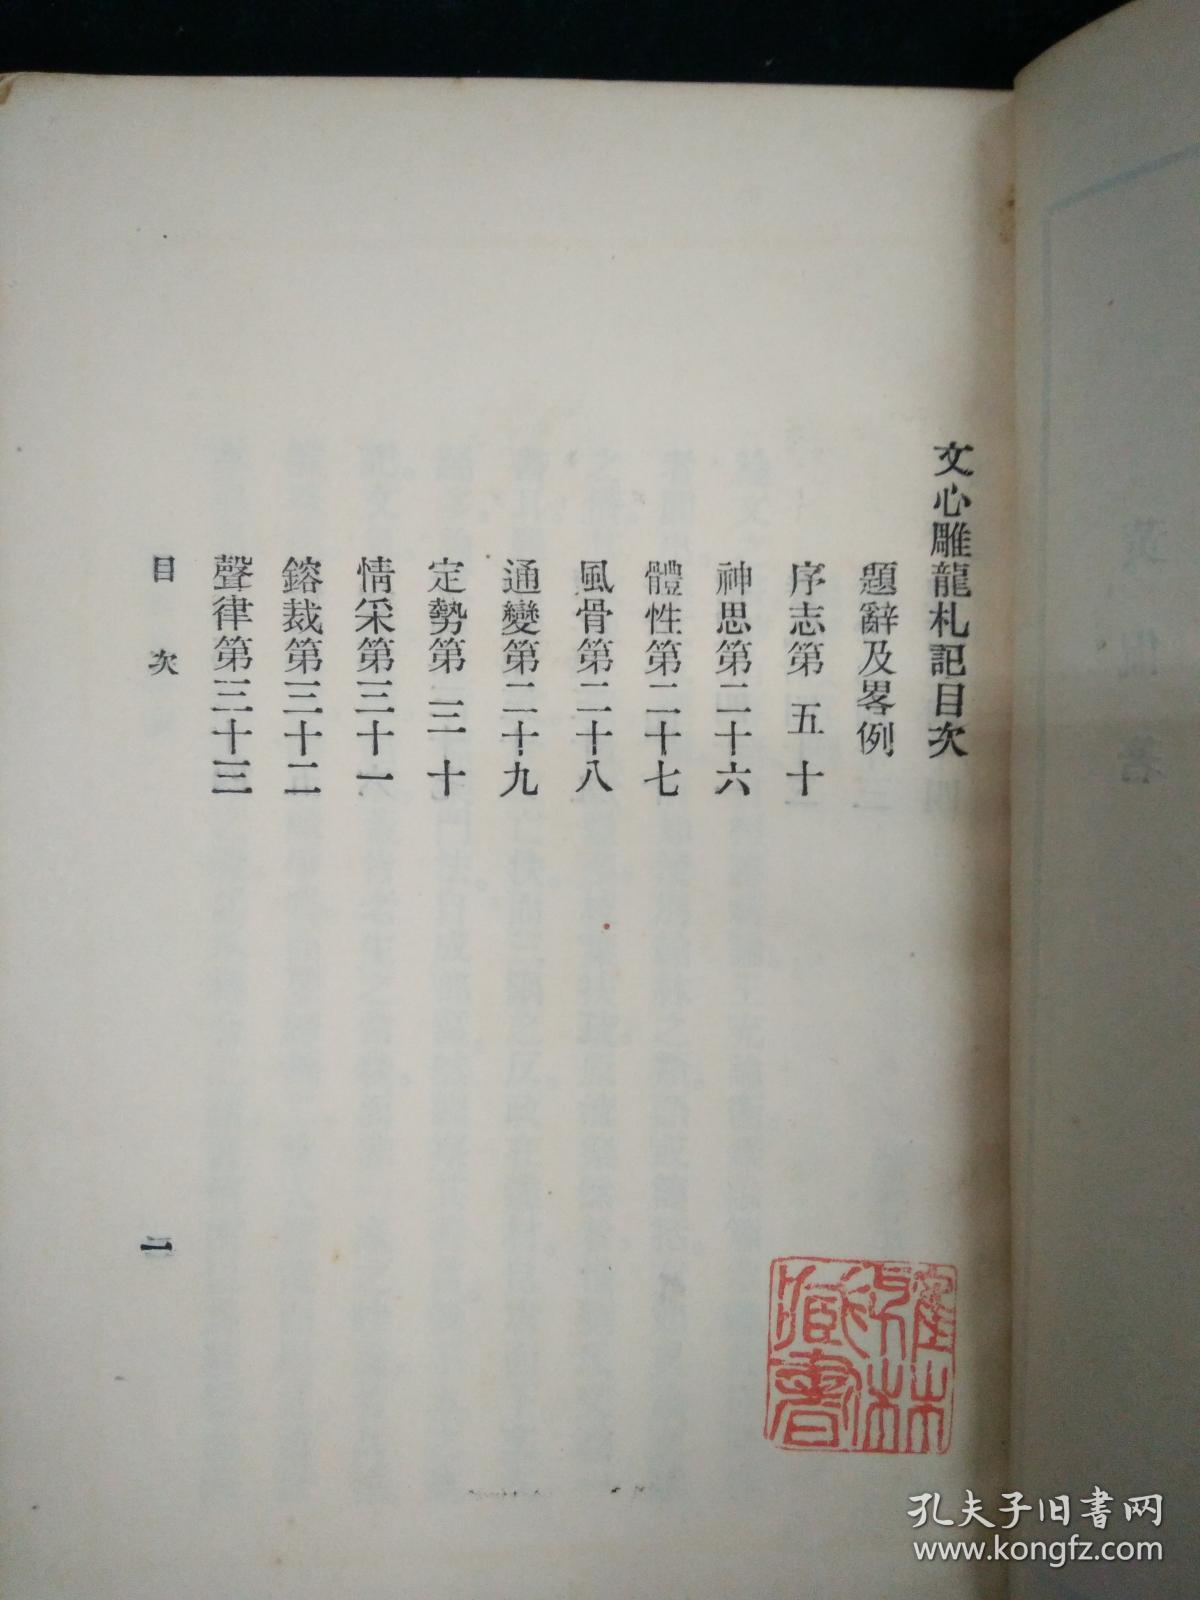 文心雕龍札記目次
題辭及畧例
序志第五十
神思第二十六
體性第二十七
風骨第二十八
通變第二十九
定勢第三十
情采第三十一
鎔裁第三十二
聲律第三十三
目次
二
藏書
孔夫子旧书网
www.kongfz.com